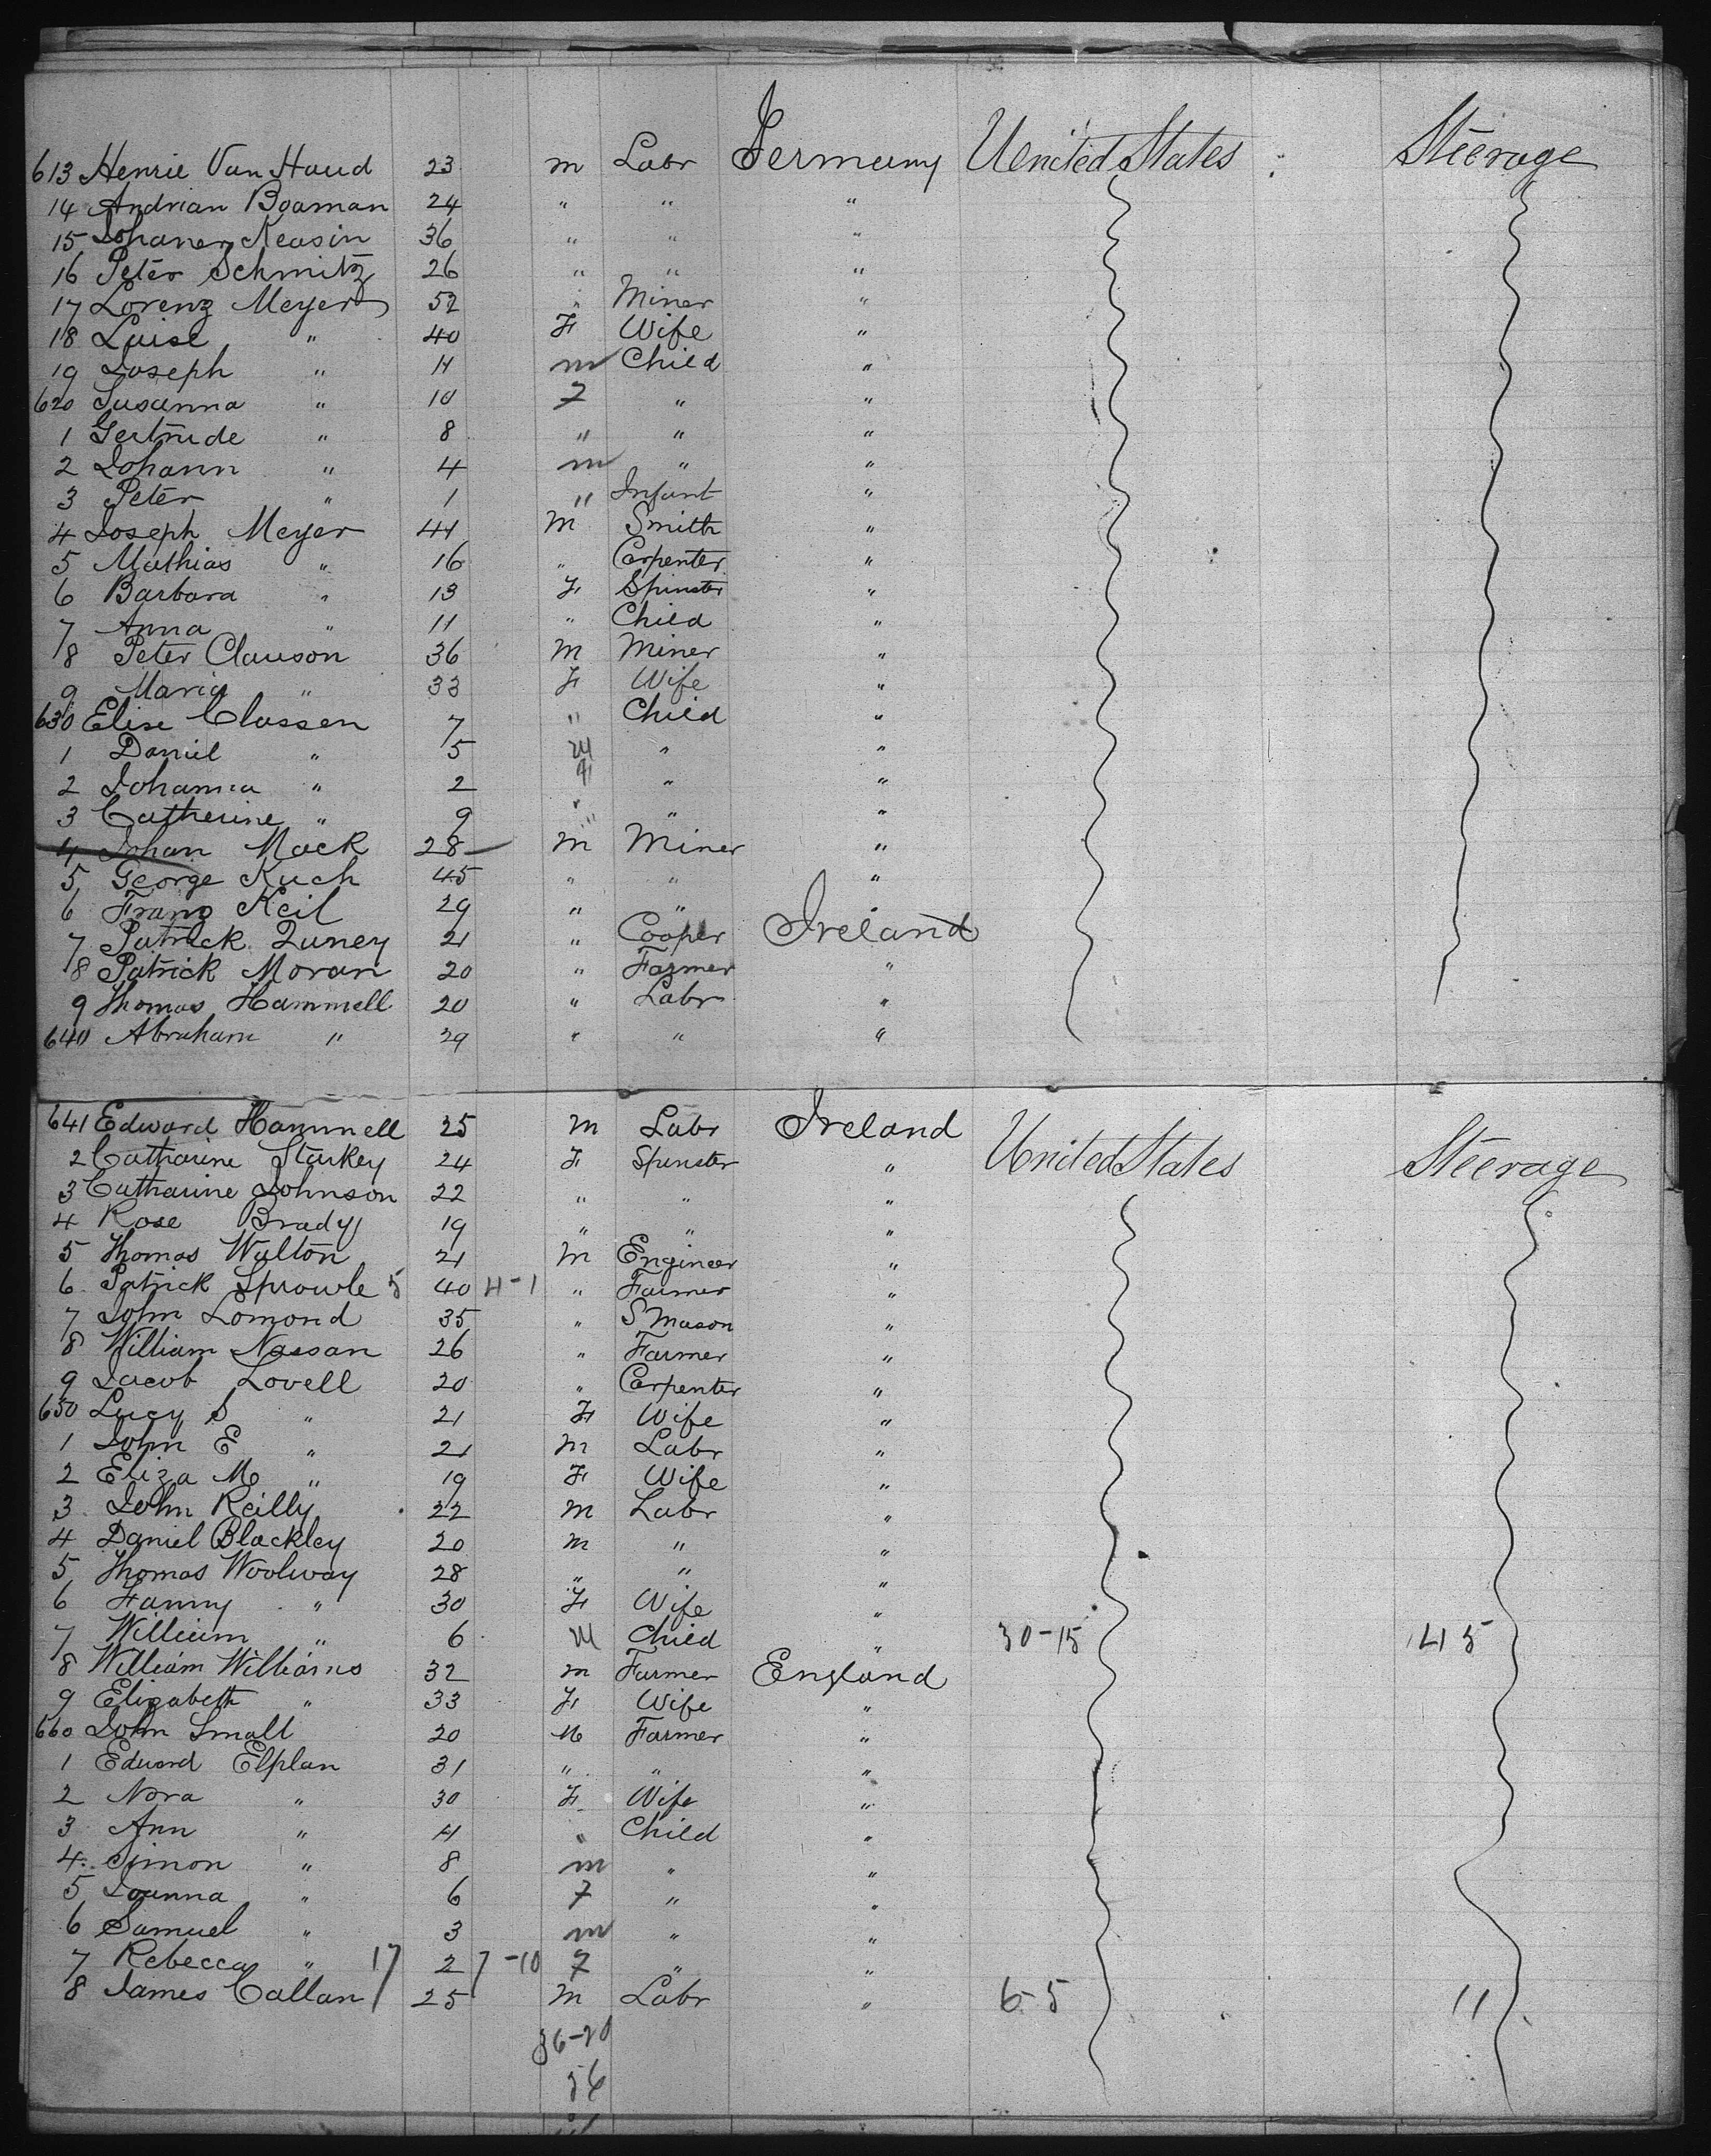 613 Henrie Van Haud 23 m Labr Germany United States Steerage
14 Andrian Boaman 24 " " "
15 Johaner Keasin 36 " " "
16 Peter Schmitz 26 " " "
17 Lorenz Meyer 52 " Miner "
18 Luise " 40 F Wife "
19 Joseph " 11 m Child "
620 Susanna " 10 F " "
1 Gertrude " 8 " " "
2 Johann " 4 m " "
3 Peter " 1 " Infant "
4 Joseph Meyer 44 M Smith "
5 Mathias " 16 " Carpenter "
6 Barbara " 13 F Spinster "
7 Anna " 11 " Child "
8 Peter Clauson 36 M Miner "
9 Maria " 33 F Wife "
630 Elise Classen 7 " Child "
1 Daniel " 5 M " "
2 Johanna " 2 F " "
3 Catherine " 9 " " "
4 Johan Mack 28 M Miner "
5 George Kuch 45 " " "
6 Franz Keil 29 " " "
7 Patrick Quney 21 " Cooper Ireland
8 Patrick Moran 20 " Farmer "
9 Thomas Hammell 20 " Labr "
640 Abraham " 29 " " "
641 Edward Hammell 25 M Labr Ireland United States Steerage
2 Catharine Starkey 24 F Spinster "
3 Catharine Johnson 22 " " "
4 Rose Brady 19 " " "
5 Thomas Walton 21 M Engineer "
6 Patrick Sprowle 5 40 4-1 " Farmer "
7 John Lomond 35 " S Mason "
8 William Nassan 26 " Farmer "
9 Jacob Lovell 20 " Carpenter "
650 Lucy S " 21 F Wife "
1 John E " 21 M Labr "
2 Eliza M " 19 F Wife "
3 John Reilly 22 M Labr "
4 Daniel Blackley 20 M " "
5 Thomas Woolway 28 " " "
6 Fanny " 30 F Wife "
7 William " 6 M Child " 30-15 45
8 William Williams 32 M Farmer England
9 Elizabeth " 33 F Wife "
660 John Small 20 M Farmer "
1 Edward Elplan 31 " " "
2 Nora " 30 F Wife "
3 Ann " 11 " Child "
4 Simon " 8 m " "
5 Joanna " 6 F " "
6 Samuel " 3 m " "
7 Rebecca " 17 2 7-10 F " "
8 James Callan 25 M Labr " 6-5 11
36-20
56